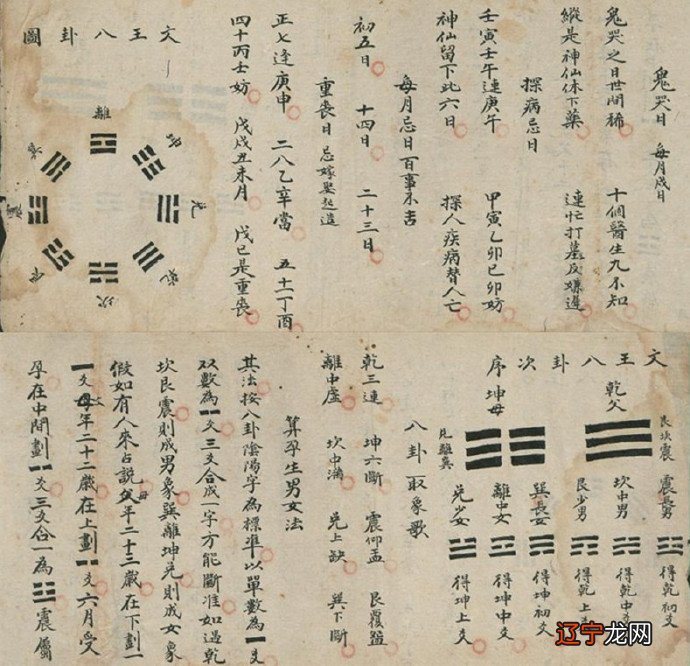 鬼哭日 每月戌日
鬼哭之日世間稀 十個醫生九不知
縱是神仙休下藥 連忙打墓反嫌遲
探病忌日
壬寅壬午連庚午 甲寅乙卯已卯妨
神仙留下此六日 探人疾病替人亡
每月忌日百事不吉
初五日 十四日 二十三日
重喪日 忌嫁娶起造
正七逢庚申 二八乙辛當 五十二丁酉
四十丙壬妨 戊戌丑未月 戊已是重喪
文王八卦圖
離
兌
乾
坎
震
文王八卦次序
乾父
坤母
艮坎震
兌離巽
震長男 得乾初爻
坎中男 得乾中爻
艮少男 得乾上爻
巽長女 得坤初爻
離中女 得坤中爻
兌少女 得坤上爻
八卦取象歌
乾三連 坤六斷 震仰盂 艮覆盌
離中虛 坎中滿 兌上缺 巽下斷
算孕生男女法
其法按八卦陰陽字為標準以單數為一爻
双數為一爻三爻合成一字方能斷准如遇乾
坎艮震則成男象巽離坤兌則成女象
假如有人來占說父年二十三歲在下劃一
爻母年二十二歲在上劃一爻六月受
孕在中間劃一爻三爻合一為震屬
辽宁龙网